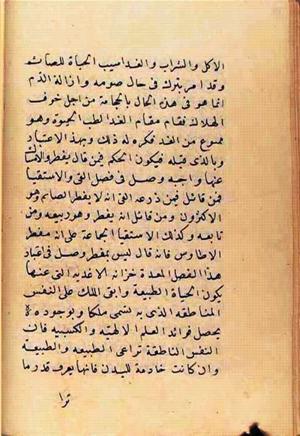 الاكل والشراب والغذا سبب الحياة للصائم
وقد امر بترك في حال صومه وازالة الدم
انما هو في هذه الحال بالحجامة من اجل خوف
الهلاك فقام مقام الغذا لطلب الحيوة وهو
ممنوع من الغذا فكره له ذلك وبهذا الاعتبار
وبالذي قبله فيكون الحكم فمن قال يفطر والامساك
عنها واجبه وصل في فصل القي والاستقيا
فمن قائل فيمن ذرعه القى انه لا يفطر الصائم وهو
الاكثرون ومن قائل انه يفطر وهو ربيعه ومن
تابعه وكذلك الاستقيا الجماعة على انه مفطر
الا طاوس فانه قال ليس بمفطر وصل في اعتبار
هذا الفصل المعدة خزانه الاغذيه التى عنها
يكون الحياة الطبيعة وابقى الملك على النفس
الناطقه الذي به تسمى ملكا وبوجوده
يحصل فوائد العلم الالهية والكسبيه فان
النفس الناطقة تراعى الطبيعه والطبيعه
وان كانت خادمة للبدن فانها يعرف قدر ما
ترا